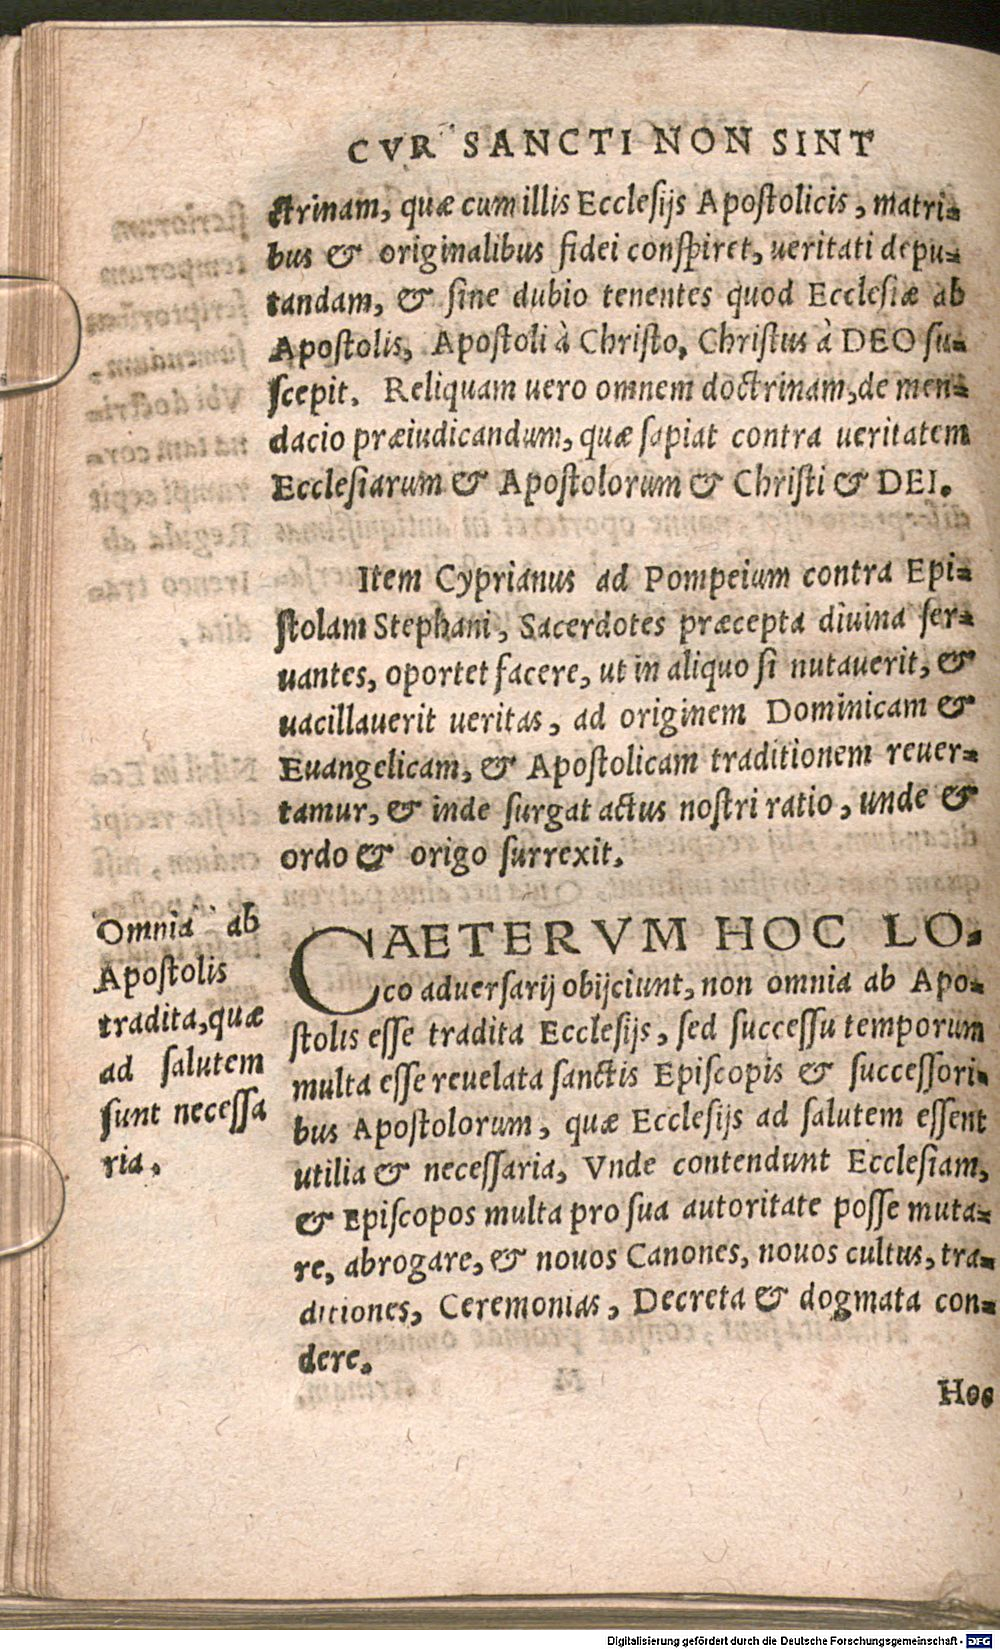 CVR SANCTI NON SINT
ctrinam, quæ cum illis Ecclesijs Apostolicis, matri-
bus & originalibus fidei conspiret, ueritati depu-
tandam, & sine dubio tenentes quod Ecclesiæ ab
Apostolis, Apostoli à Christo, Christus à DEO su-
scepit. Reliquam uero omnem doctrinam, de men-
dacio præiudicandum, quæ sapiat contra ueritatem
Ecclesiarum & Apostolorum & Christi & DEI.
Item Cyprianus ad Pompeium contra Epi-
stolam Stephani, Sacerdotes præcepta diuina ser-
uantes, oportet facere, ut in aliquo si nutauerit, &
uacillauerit ueritas, ad originem Dominicam &
Euangelicam, & Apostolicam traditionem reuer-
tamur, & inde surgat actus nostri ratio, unde &
ordo & origo surrexit.
Omnia ab
Apostolis
tradita, quæ
ad salutem
sunt necessa
ria.
CAETERVM HOC LO-
co aduersarij obijciunt, non omnia ab Apo-
stolis esse tradita Ecclesijs, sed successu temporum
multa esse reuelata sanctis Episcopis & successori-
bus Apostolorum, quæ Ecclesijs ad salutem essent
utilia & necessaria, Vnde contendunt Ecclesiam,
& Episcopos multa pro sua autoritate posse muta-
re, abrogare, & nouos Canones, nouos cultus, tra-
ditiones, Ceremonias, Decreta & dogmata con-
dere.
Hoc
Digitalisierung gefördert durch die Deutsche Forschungsgemeinschaft - DFG